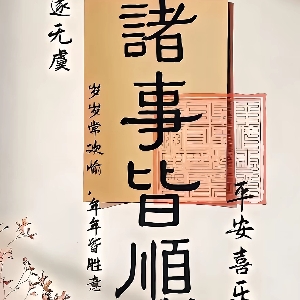 遂无虞
岁岁常欢愉，年年皆胜意
諸事皆順
平安喜乐